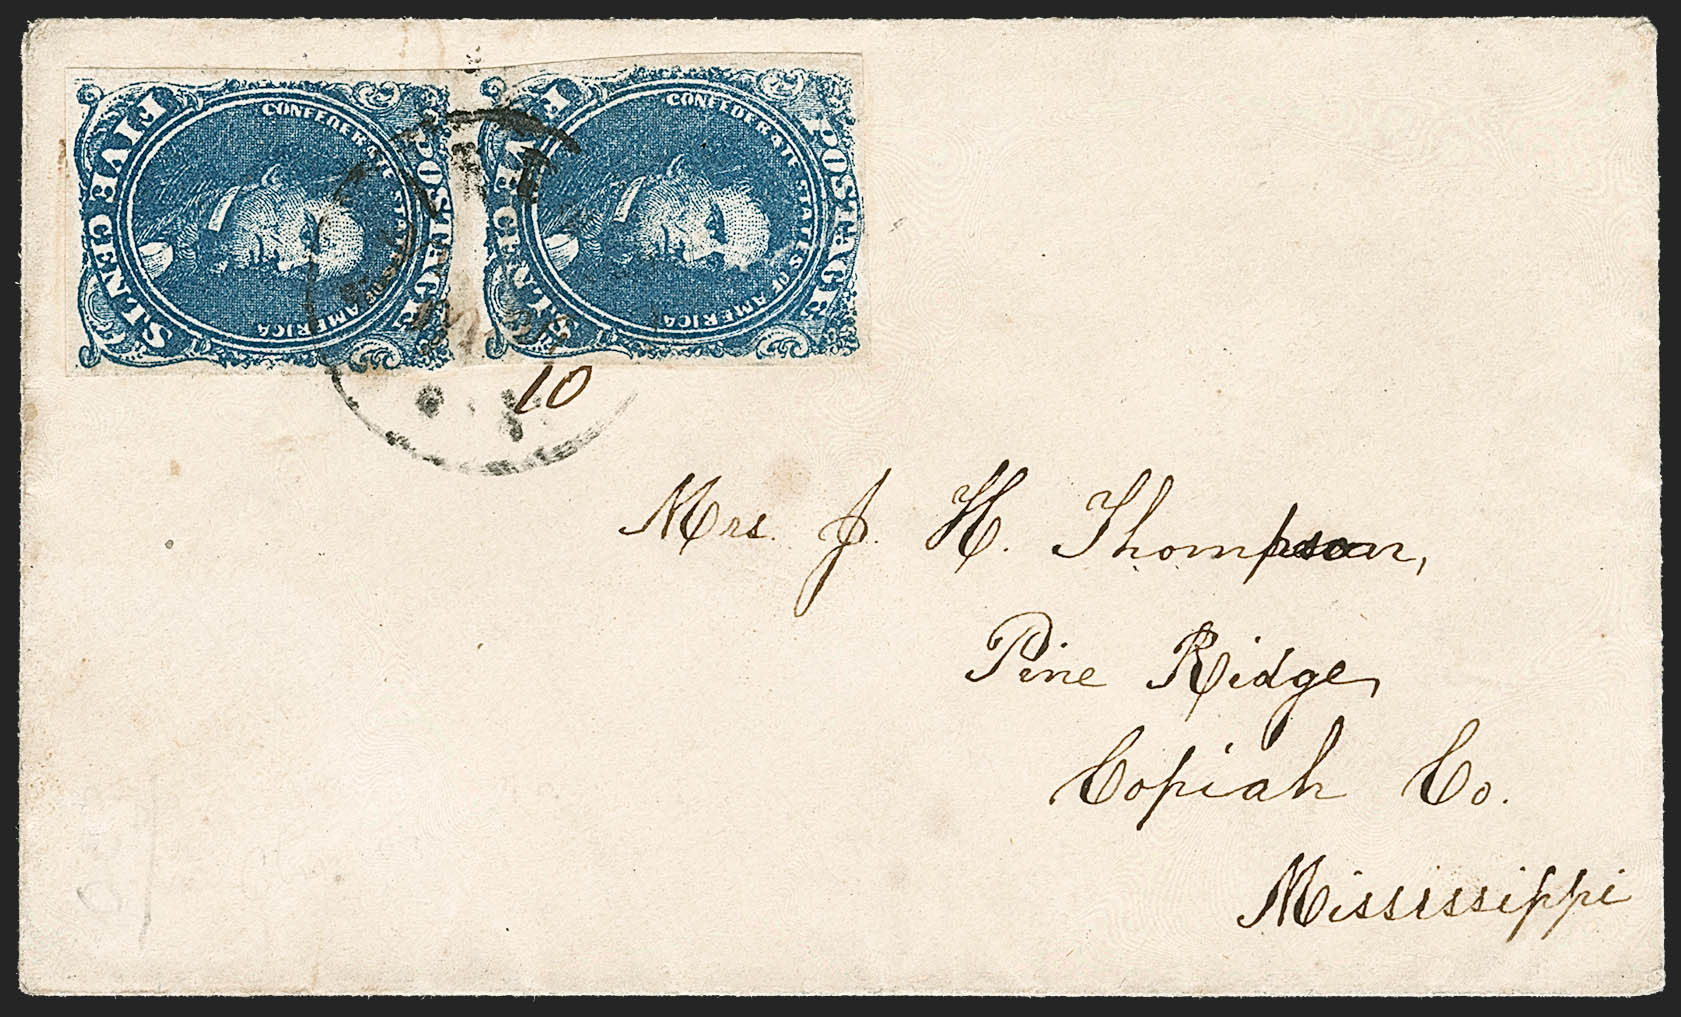 POSTAGE
CONFEDERATE STATES OF AMERICA
FIVE CENTS
POSTAGE
CONFEDERATE STATES OF AMERICA
FIVE CENTS
10
Mrs. J. H. Thompson,
Pine Ridge,
Copiah Co.
Mississippi